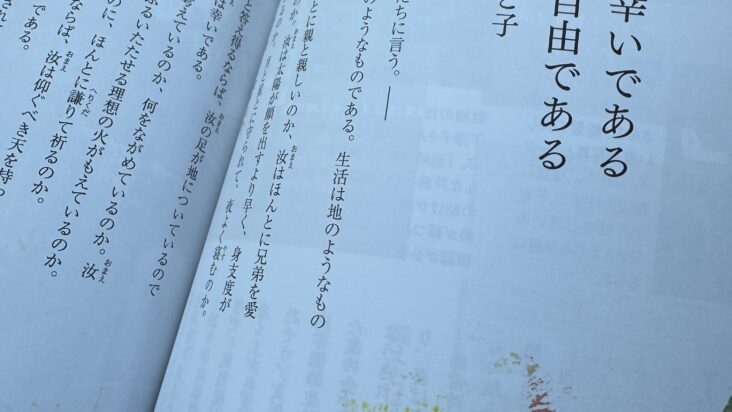 幸いである
自由である
と子
たちに言う。――
のようなものである。生活は地のようなもの
とに親と親しいのか、汝はほんとに兄弟を愛
のか。汝は太陽が顔を出すより早く、身支度が
られて、夜よく寝むのか。
と答え得るならば、汝の足が地についているので
は幸いである。
考えているのか、何をながめているのか。汝
ふるいたたせる理想の火がもえているのか。
のに、ほんとに謙りて祈るのか。
ならば、汝は仰ぐべき天を持つ
である。